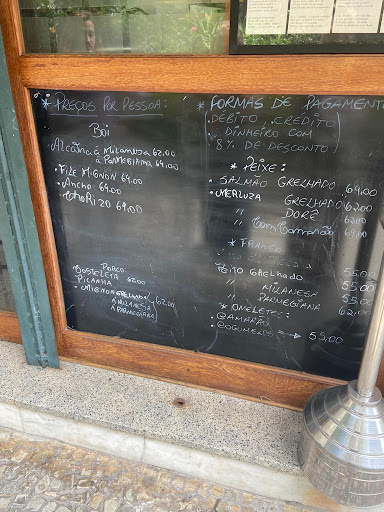 * PREÇOS POR PESSOA:
BOI
ALCATRA À MILANESA 62.00
À PARMEGIANA 64.00
• FILÉ MIGNON 69.00
• ANCHO 69.00
• CHORIZO 69,00
PORCO
BOSTELETA
PICANHA 62.00
• MIGNON GRELHADO
À MILANESA
À PARMEGIANA
62,00
* FORMAS DE PAGAMENTO
(DÉBITO, CRÉDITO
DINHEIRO COM
8% DE DESCONTO)
* PEIXE:
• SALMÃO GRELHADO 69,00
• MERLUZA GRELHADO 62.00
" DORÊ 62.00
" COM CAMARÃO 69,00
* FRANGO
PEITO GRELHADO 55.00
" MILANESA 55.00
" PARMEGIANA 55.00
62,00
* OMELETES:
• CAMARÃO
• COGUMELO → 55,00